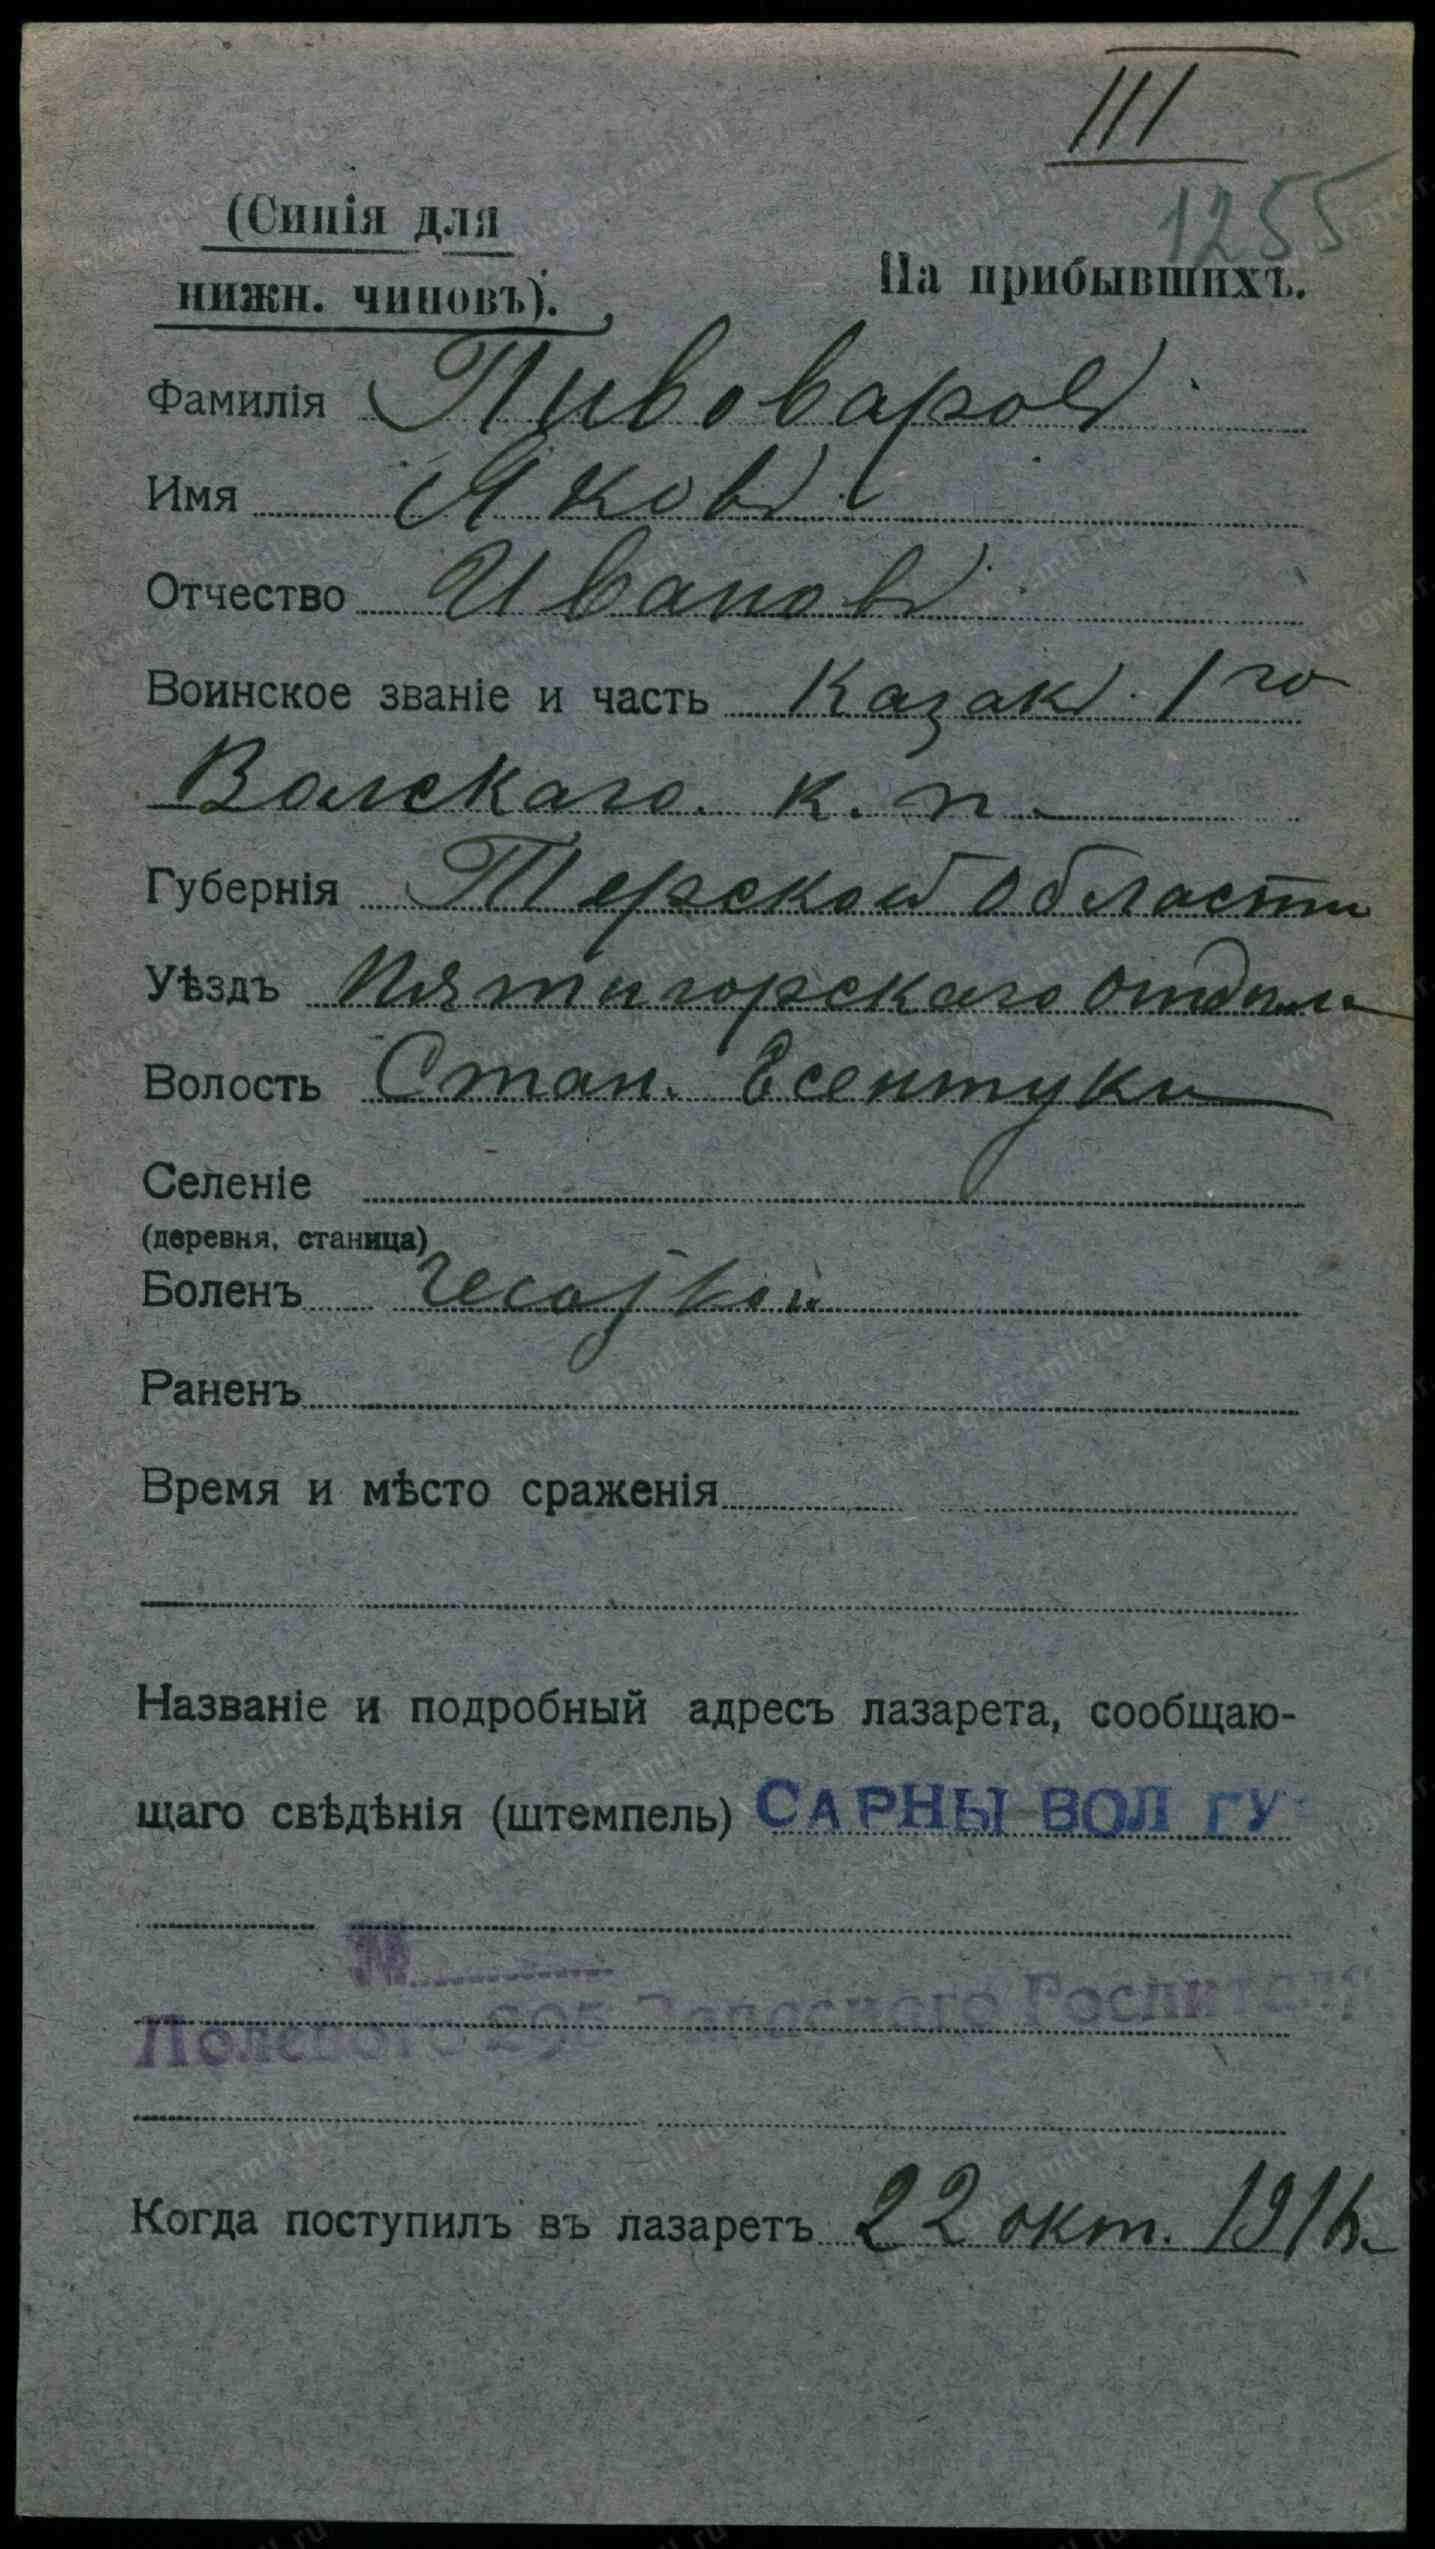 III
1255
(Синія для
нижн. чиновъ).
На прибывшихъ.
Фамилія Пивоваровъ
Имя Яковъ
Отчество Ивановъ
Воинское званіе и часть Казакъ 1го
Волскаго к. п.
Губернія Терской области
Уѣздъ Пятигорскаго отдѣла
Волость Стан. Есентуки
Селеніе
(деревня, станица)
Боленъ чесоткой
Раненъ
Время и мѣсто сраженія
Названіе и подробный адресъ лазарета, сообщаю-
щаго свѣдѣнія (штемпель) САРНЫ ВОЛ ГУ
№
Полевого Запаснаго Госпиталя
Когда поступилъ въ лазаретъ 22 окт. 1916.